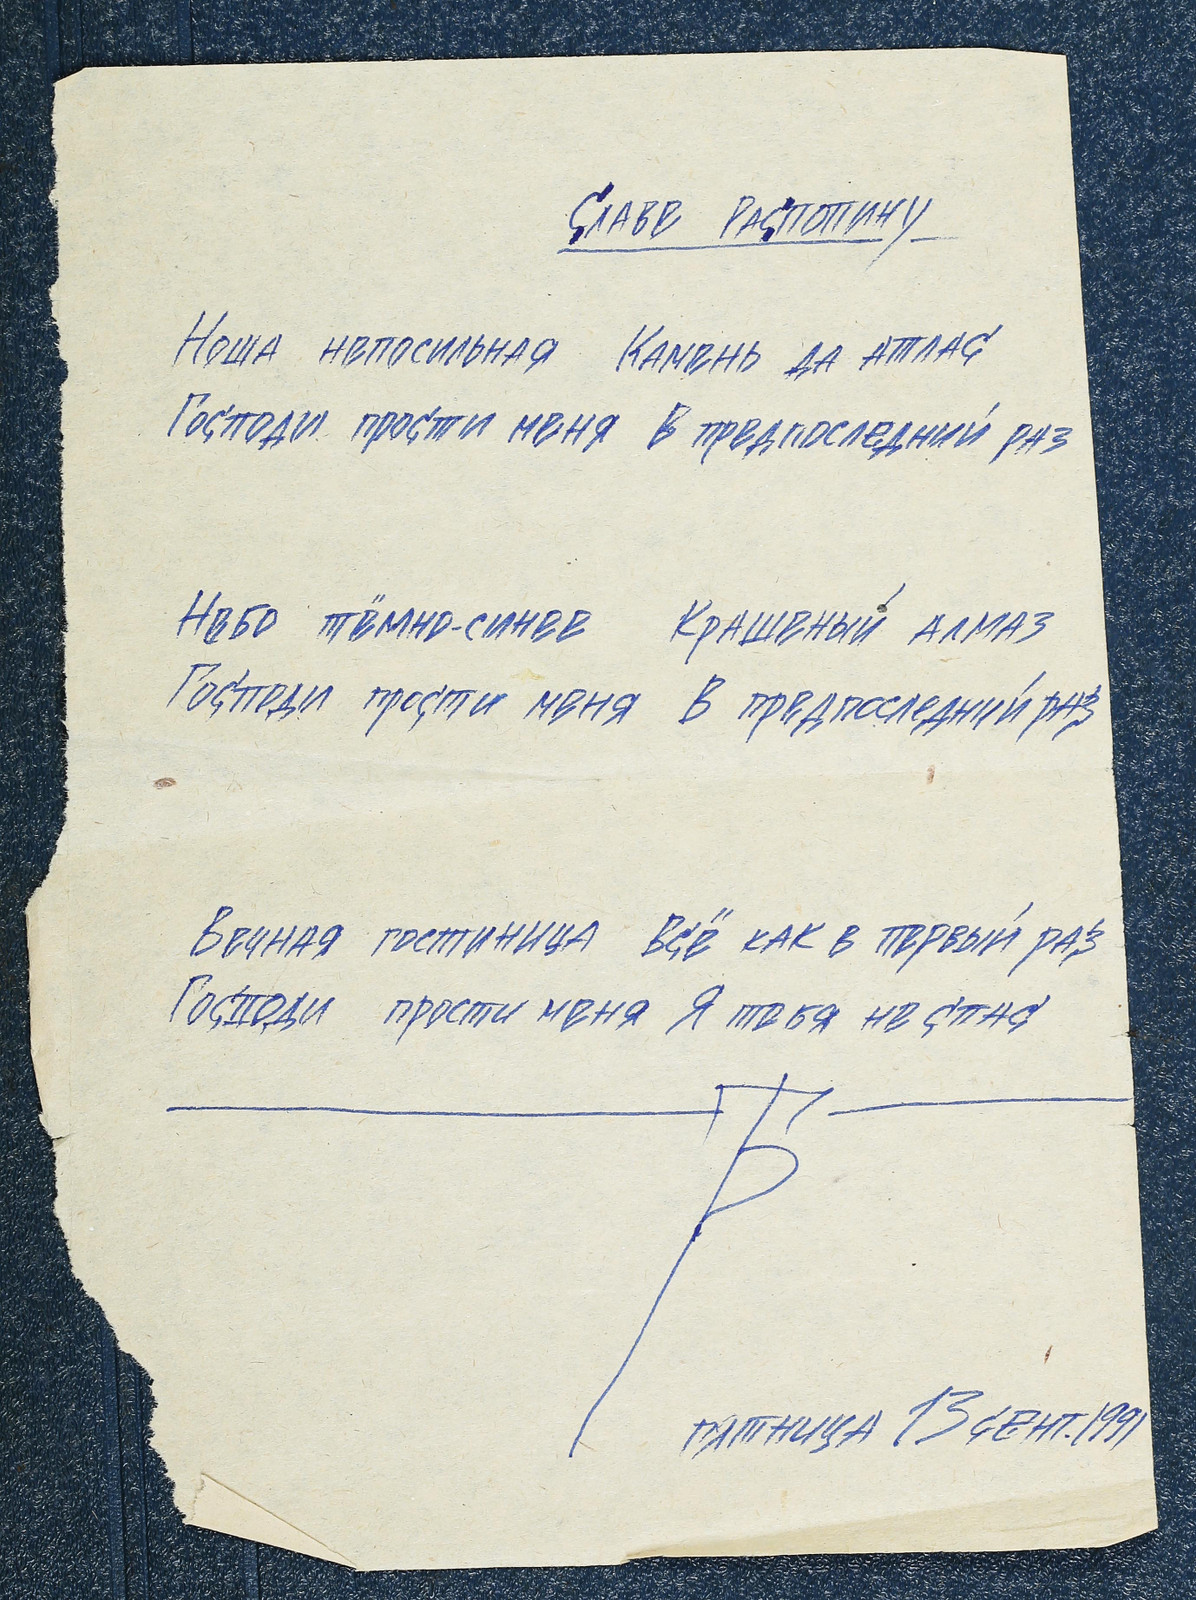 Славе Распопину
Ноша непосильная Камень да атлас
Господи прости меня В предпоследний раз
Небо тёмно-синее Крашеный алмаз
Господи прости меня В предпоследний раз
Вечная гостиница Всё как в первый раз
Господи прости меня Я тебя не спас
пятница 13 сент. 1991